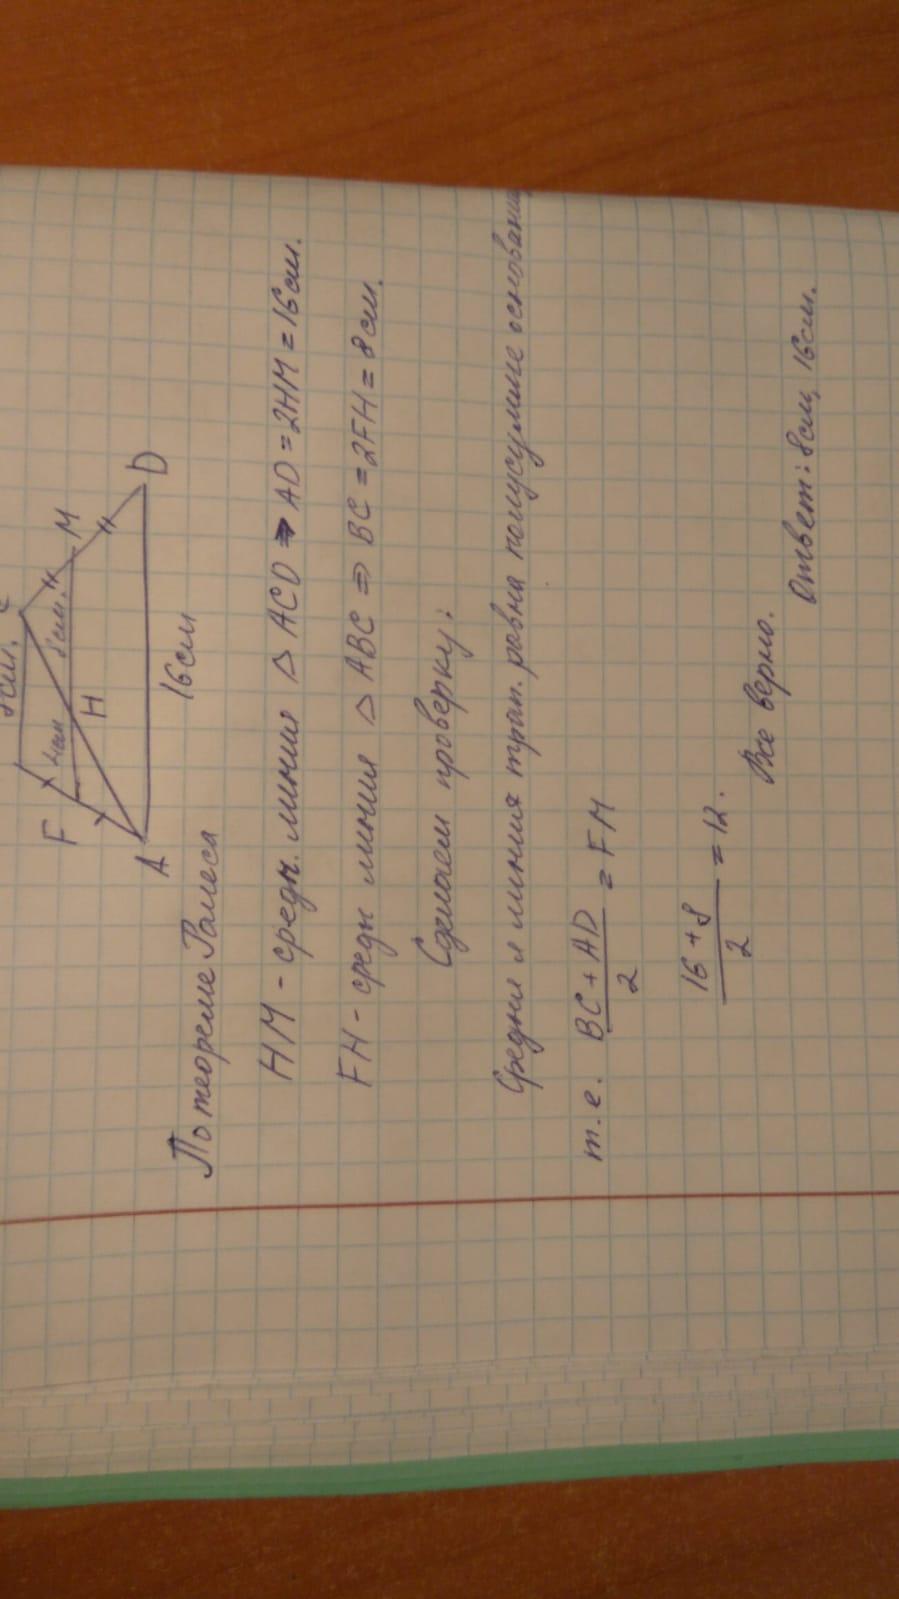 8см.
C
F
4см
8см.
M
H
A
D
16см
По теореме Фалеса
HM - средн. линия △ ACD ⇒ AD = 2HM = 16см.
FH - средн линия △ ABC ⇒ BC = 2FH = 8см.
Сделаем проверку:
Средняя линия трап. равна полусумме основани
т.е. BC + AD / 2 = FM
16 + 8 / 2 = 12.
Все верно.
Ответ: 8см, 16см.